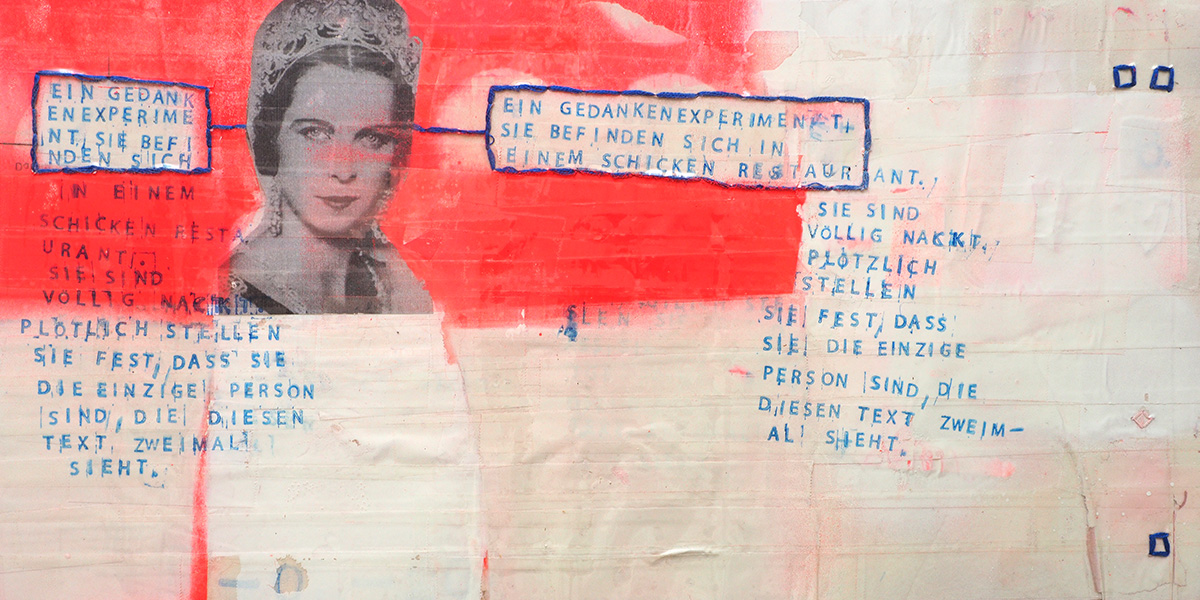 EIN GEDANK
ENEXPERIME
NT, SIE BEFI
NDEN SICH
IN EINEM
SCHICKEN RESTA
URANT.
SIE SIND
VÖLLIG NACKT.
PLÖTLICH STELLEN
SIE FEST, DASS SIE
DIE EINZIGE PERSON
SIND, DIE DIESEN
TEXT ZWEIMAL
SIEHT.
EIN GEDANKENEXPERIMENT,
SIE BEFINDEN SICH IN
EINEM SCHICKEN RESTAURANT.
SIE SIND
VÖLLIG NACKT.
PLÖTZLICH
STELLEN
SIE FEST, DASS
SIE DIE EINZIGE
PERSON SIND, DIE
DIESEN TEXT ZWEIM-
AL SIEHT.